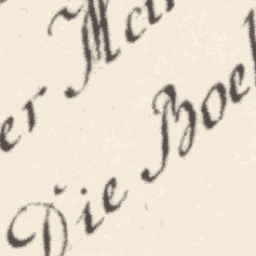 er Mei
Die Boe